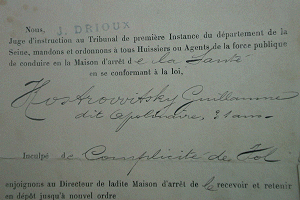 Nous, J. DRIOUX
Juge d'instruction au Tribunal de première Instance du département de la
Seine, mandons et ordonnons à tous Huissiers ou Agents de la force publique
de conduire en la Maison d'arrêt de la Santé
en se conformant à la loi,
Kostrowitsky Guillaume
dit Apollinaire, 31 ans.
Inculpé de Complicité de Vol
enjoignons au Directeur de ladite Maison d'arrêt de le recevoir et retenir
en dépôt jusqu'à nouvel ordre